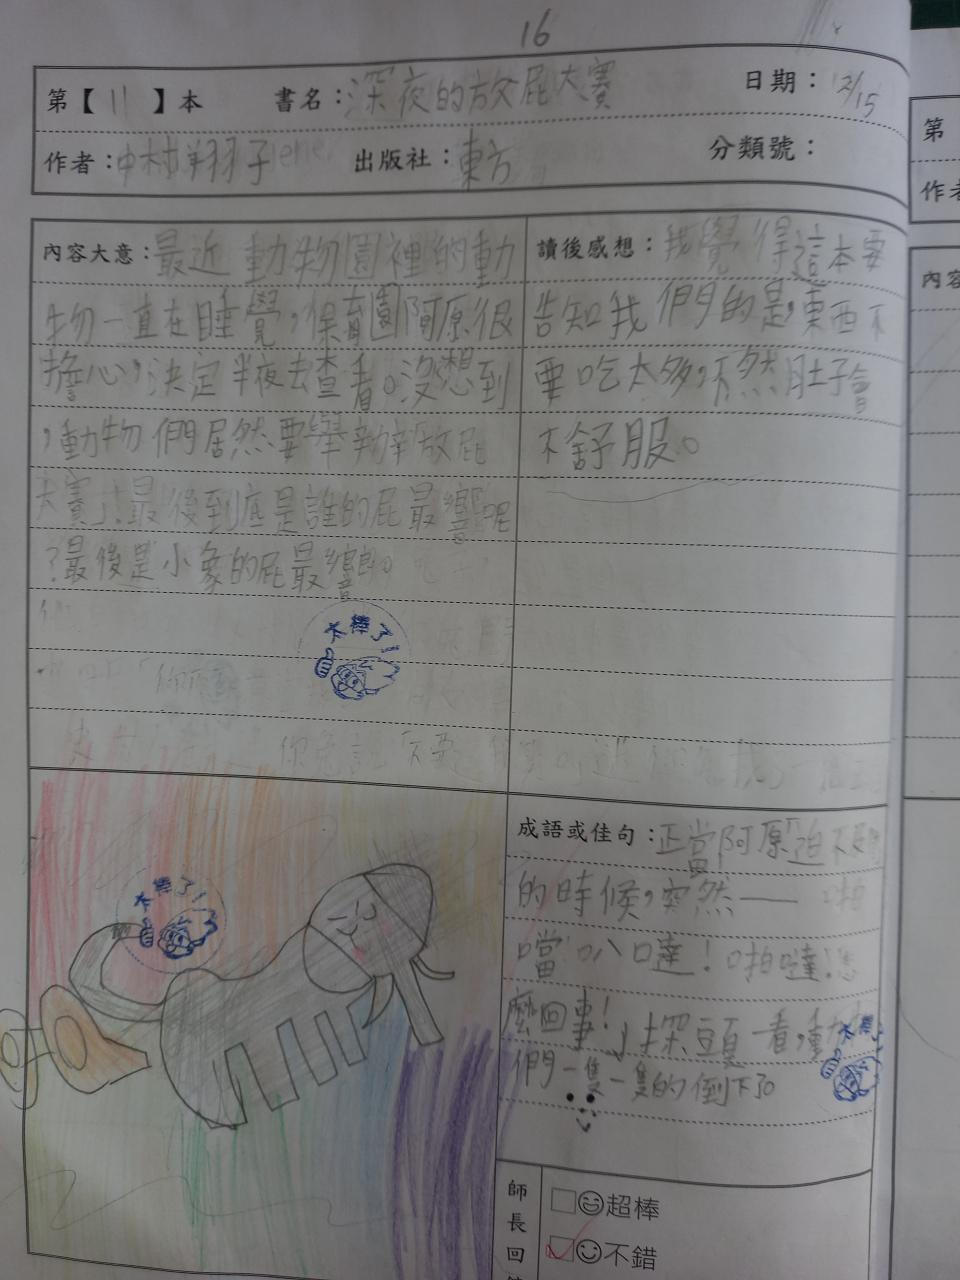 16
第【11】本 書名：深夜的放屁大賽 日期：12/15
作者：中村翔子 出版社：東方 分類號：
內容大意：最近動物園裡的動
物一直在睡覺，保育園阿原很
擔心，決定半夜去查看。沒想到
，動物們居然要舉辦「放屁
大賽」！最後到底是誰的屁最響呢
？最後是小象的屁最響。
太棒了！
讀後感想：我覺得這本要
告知我們的是，東西不
要吃太多，不然肚子會
不舒服。
太棒了！
成語或佳句：正當阿原「迫不及
的時候，突然——啪
噹叭噠！啪噠！
麼回事！」探頭一看，動
們一隻一隻的倒下了
太棒
師長回
超棒
不錯
第
作者
內容